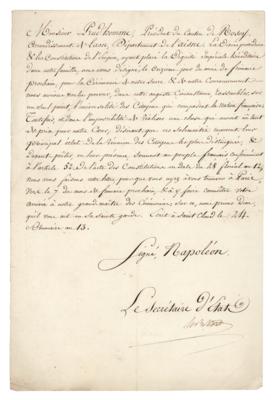 Monsieur Prudhomme, Président du Canton de Rozoy,
Arrondissement de Laon, Département de l'aisne, la Divine providence
& les Constitutions de l'Empire, ayant placé la Dignité Impériale héréditaire
dans notre famille, nous avons désigné le Onzième jour du mois de frimaire
prochain, pour la Cérémonie de notre Sacre & de notre Couronnement
nous aurions voulu pouvoir, dans cette auguste Circonstance, rassembler sur
un seul point l'universalité des Citoyens qui composent la Nation française
Toutefois, & dans l'impossibilité de réaliser une chose qui aurait eu tant
de prix pour notre Cœur, désirant que ces Solennités reçoivent leur
principal éclat de la réunion des Citoyens les plus distingués, &
devant prêter en leur présence, serment au peuple français conformément
à l'article 52 de l'acte des Constitutions en date du 28 floréal an 12,
nous vous faisons cette lettre pour que vous ayez à vous trouver à Paris
avant le 7 du mois de frimaire prochain, & à y faire connaître votre
arrivée à notre grand maître des Cérémonies, sur ce, nous prions Dieu,
qu'il vous ait en sa sainte garde. Écrit à Saint Cloud le 24.
Brumaire an 13.
Signé, Napoléon.
Le Secrétaire d'État